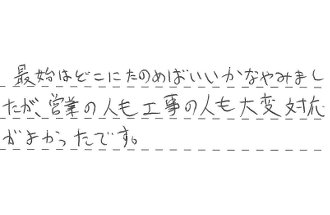 最始はどこにたのめばいいかなやみまし
たが、営業の人も工事の人も大変対応
がよかったです。